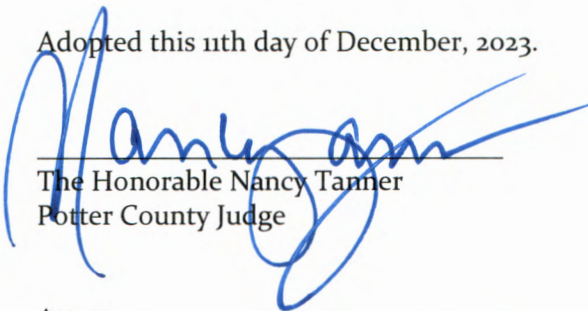 Adopted this 11th day of December, 2023.
Nancy Tanner
The Honorable Nancy Tanner
Potter County Judge